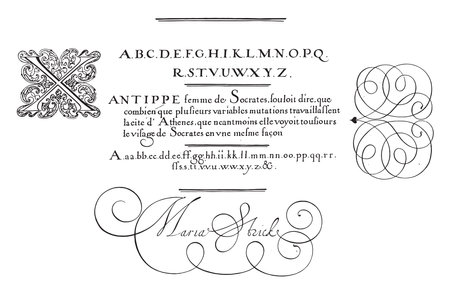 A.B.C.D.E.F.G.H.I.K.L.M.N.O.P.Q
R.S.T.V.U.W.X.Y.Z.
XANTIPPE femme de Socrates, souloit dire, que
combien que plusieurs variables mutations travaillassent
la cite d'Athenes, que neantmoins elle voyoit tousiours
le visage de Socrates en vne mesme façon
A.aa.bb.cc.dd.ee.ff.gg.hh.ii.kk.ll.mm.nn.oo.pp.qq.rr.
ſſ.ss.tt.vv.u.w.w.x.y.z.&.
Maria Strick